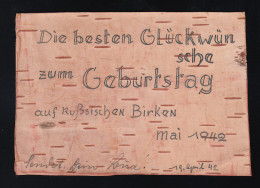 Die besten Glückwün
sche
zum Geburtstag
auf Rußsischen Birken
mai 1942
19. April 42